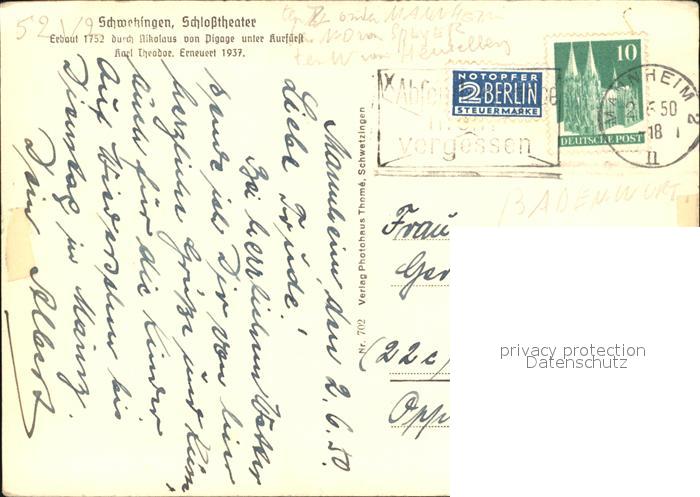 52 1/9
Schwetzingen, Schloßtheater
Erbaut 1752 durch Nikolaus von Pigage unter Kurfürst
Karl Theodor. Erneuert 1937.
MANNHEIM
NO von SPEYER
W von Heidelberg
NOTOPFER
2 BERLIN
STEUERMARKE
10
DEUTSCHE POST
vergessen
MANNHEIM 2
2.6.50
-18
n
BADEN WÜRT.
Mannheim, den 2.6.50.
Liebe Trude!
Bei herrlichem Wetter
sende ich Dir von hier
herzliche Grüße und Küsse
auch für die Kinder
Auf Wiedersehen bis
Dienstag in Mainz.
Dein Albert
Nr. 702 Verlag Photohaus Thomé, Schwetzingen
Frau
Ger
(22c)
Opp
privacy protection
Datenschutz